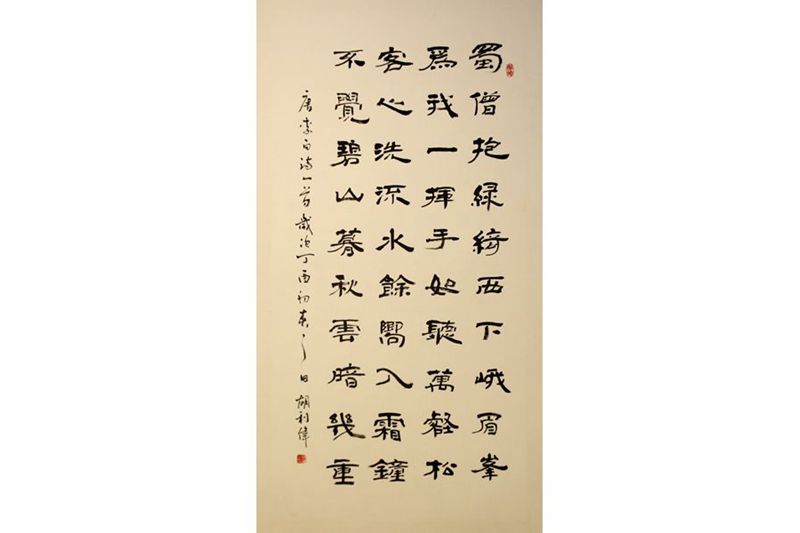 蜀僧抱緑綺西下峨眉峯
爲我一揮手如聽萬壑松
客心洗流水餘響入霜鐘
不覺碧山暮秋雲暗幾重
唐李白詩一首歲次丁酉初春之日胡利偉